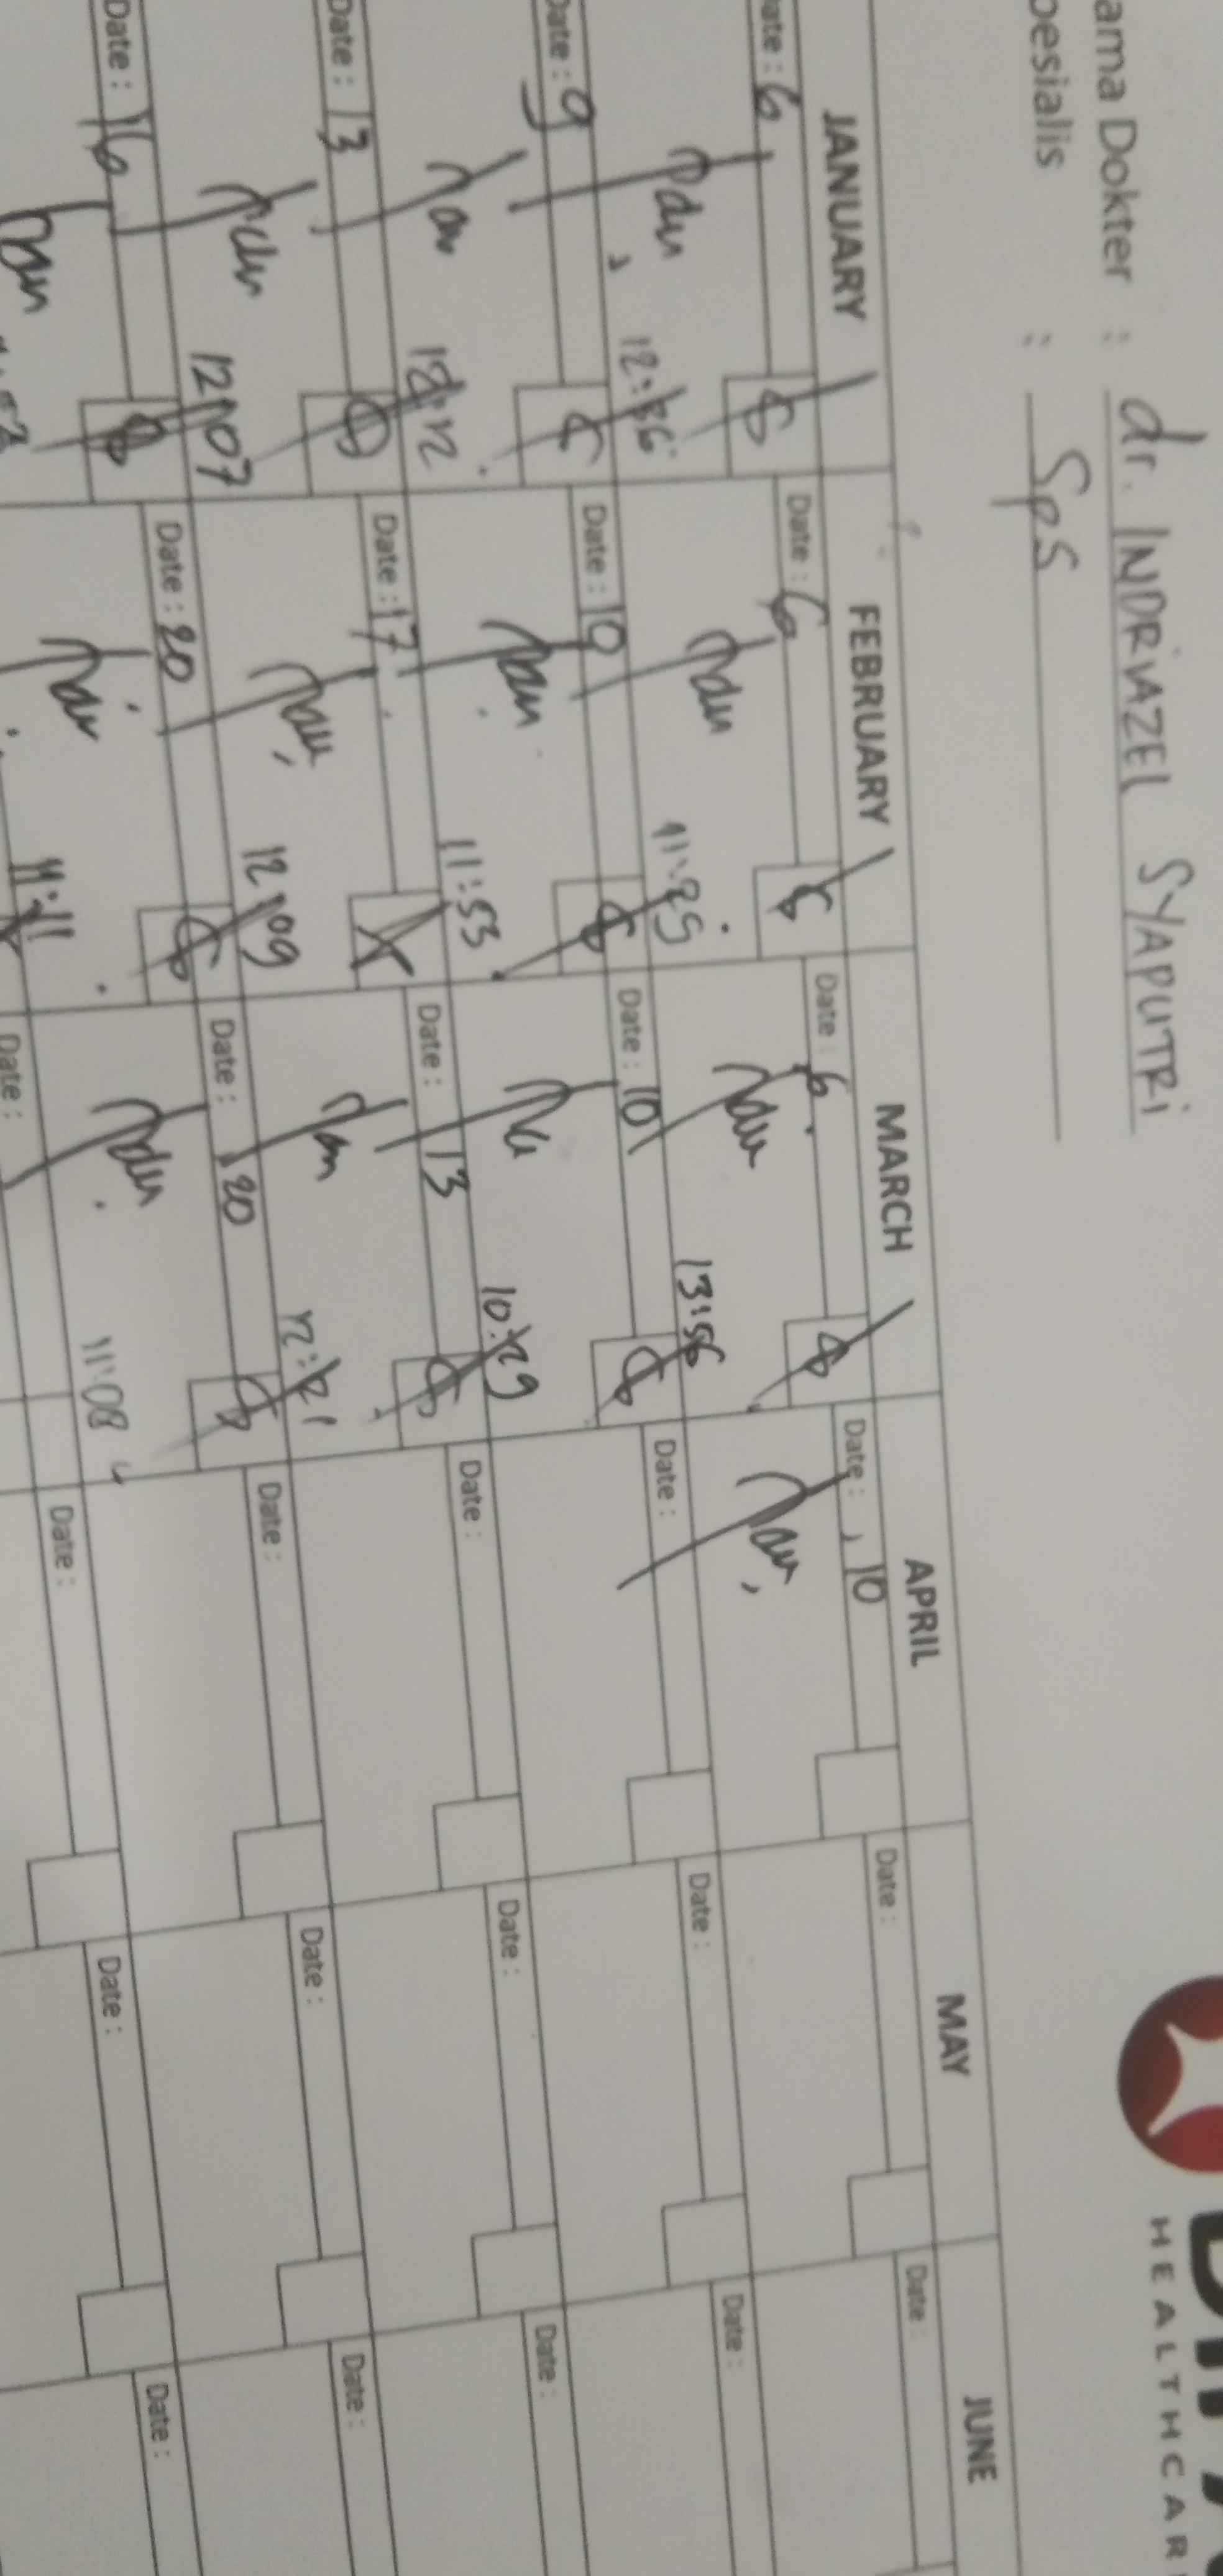 ama Dokter : dr. INDRIAZEL SYAPUTRI
pesialis : SpS
HEALTHCAR
JANUARY FEBRUARY MARCH APRIL MAY JUNE
Date : 6 Date : 6 Date : 6 Date : 10 Date : Date :
12:36 11:25 13:56
Date : 9 Date : 10 Date : 10 Date : Date : Date :
12:12 11:53 10:29
Date : 13 Date : 17 Date : 13 Date : Date : Date :
12:07 12:09 12:21
Date : 16 Date : 20 Date : 20 Date : Date : Date :
11:11 11:08
Date :